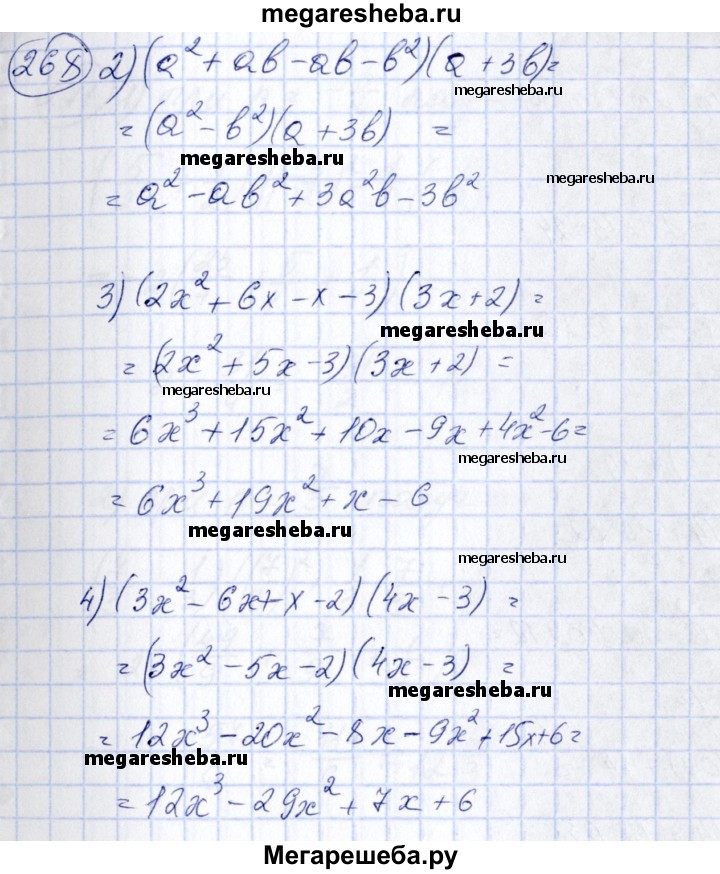 megaresheba.ru
268 2) (a² + ab - ab - b²)(a + 3b) =
megaresheba.ru
= (a² - b²)(a + 3b) =
megaresheba.ru
= a² - ab² + 3a²b - 3b²
megaresheba.ru
3) (2x² + 6x - x - 3)(3x + 2) =
megaresheba.ru
= (2x² + 5x - 3)(3x + 2) =
megaresheba.ru
= 6x³ + 15x² + 10x - 9x + 4x² - 6 =
megaresheba.ru
= 6x³ + 19x² + x - 6
megaresheba.ru
megaresheba.ru
4) (3x² - 6x + x - 2)(4x - 3) =
= (3x² - 5x - 2)(4x - 3) =
megaresheba.ru
= 12x³ - 20x² - 8x - 9x² + 15x + 6 =
megaresheba.ru
= 12x³ - 29x² + 7x + 6
Мегарешеба.ру